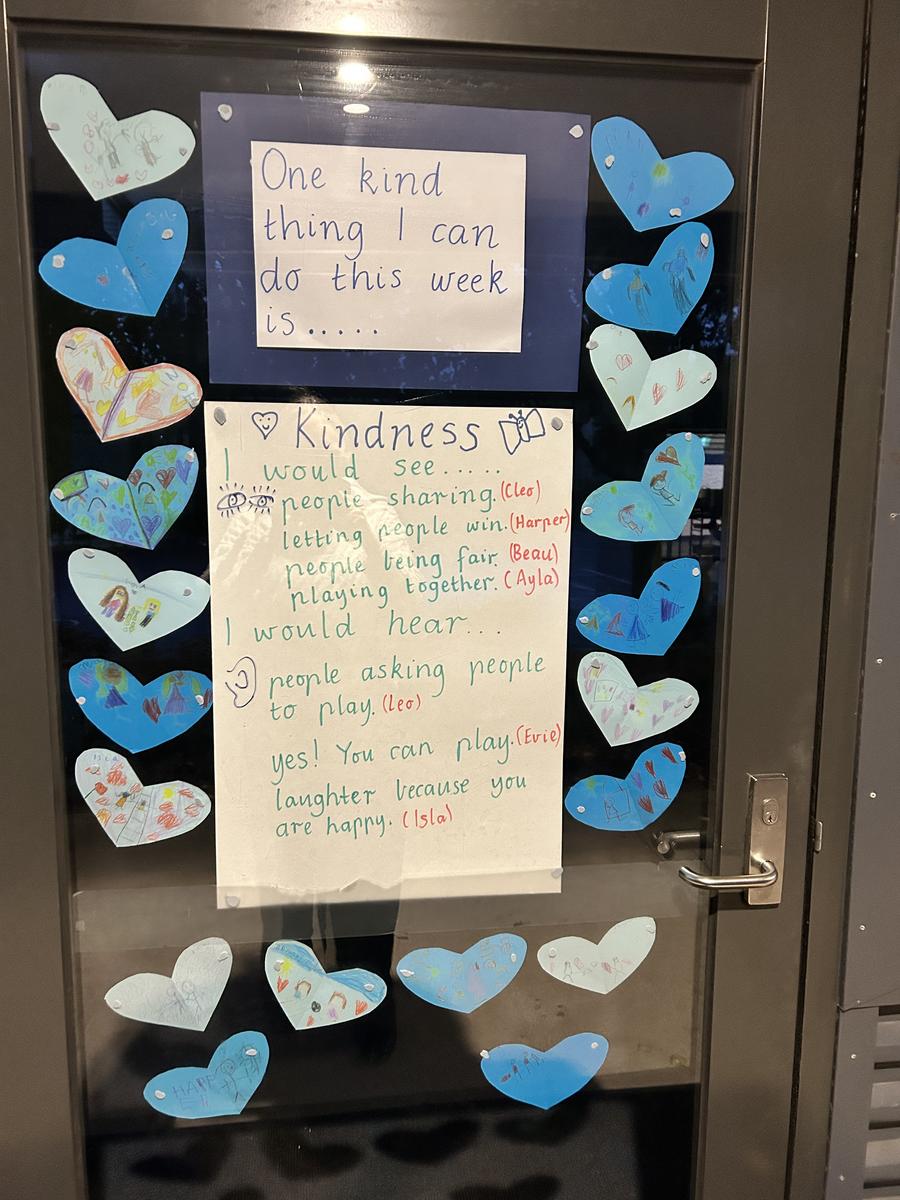 One kind
thing I can
do this week
is.....
Kindness
I would see.....
people sharing. (Cleo)
letting people win. (Harper)
people being fair. (Beau)
playing together. (Ayla)
I would hear...
people asking people
to play. (Leo)
yes! You can play. (Evie)
laughter because you
are happy. (Isla)